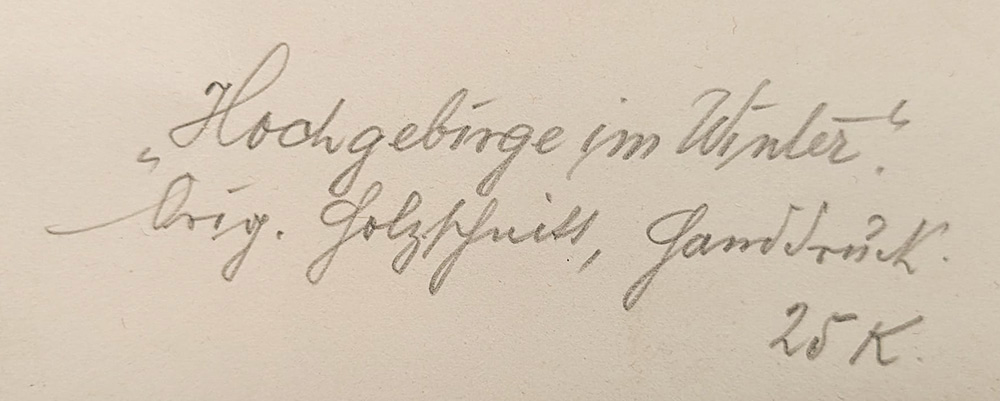 „Hochgebirge im Winter.“
Orig. Holzschnitt, Handdruck.
25 K.